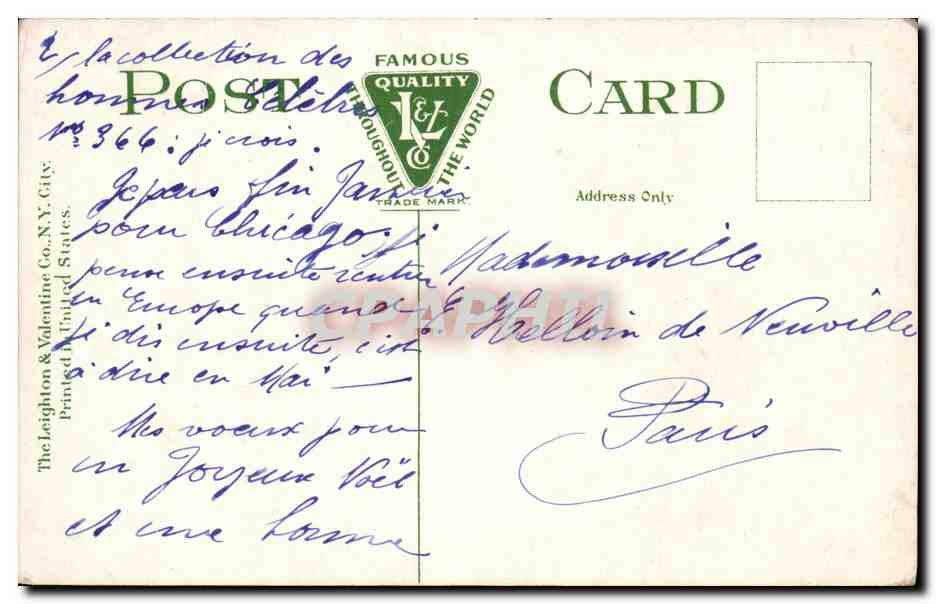 POST CARD
FAMOUS
QUALITY
THROUGHOUT THE WORLD
L&V
Co
TRADE MARK
Address Only
The Leighton & Valentine Co., N.Y. City.
Printed in United States.
2/ la collection des
hommes célèbres
No 366: je crois.
Je pars fin Janvier
pour Chicago, je
pense ensuite rentrer
en Europe quand
je dis ensuite, c'est
à dire en Mai —
Mes voeux pour
un Joyeux Noël
et une bonne
Mademoiselle
Y. Helloin de Neuville
Paris
CPAPHIL